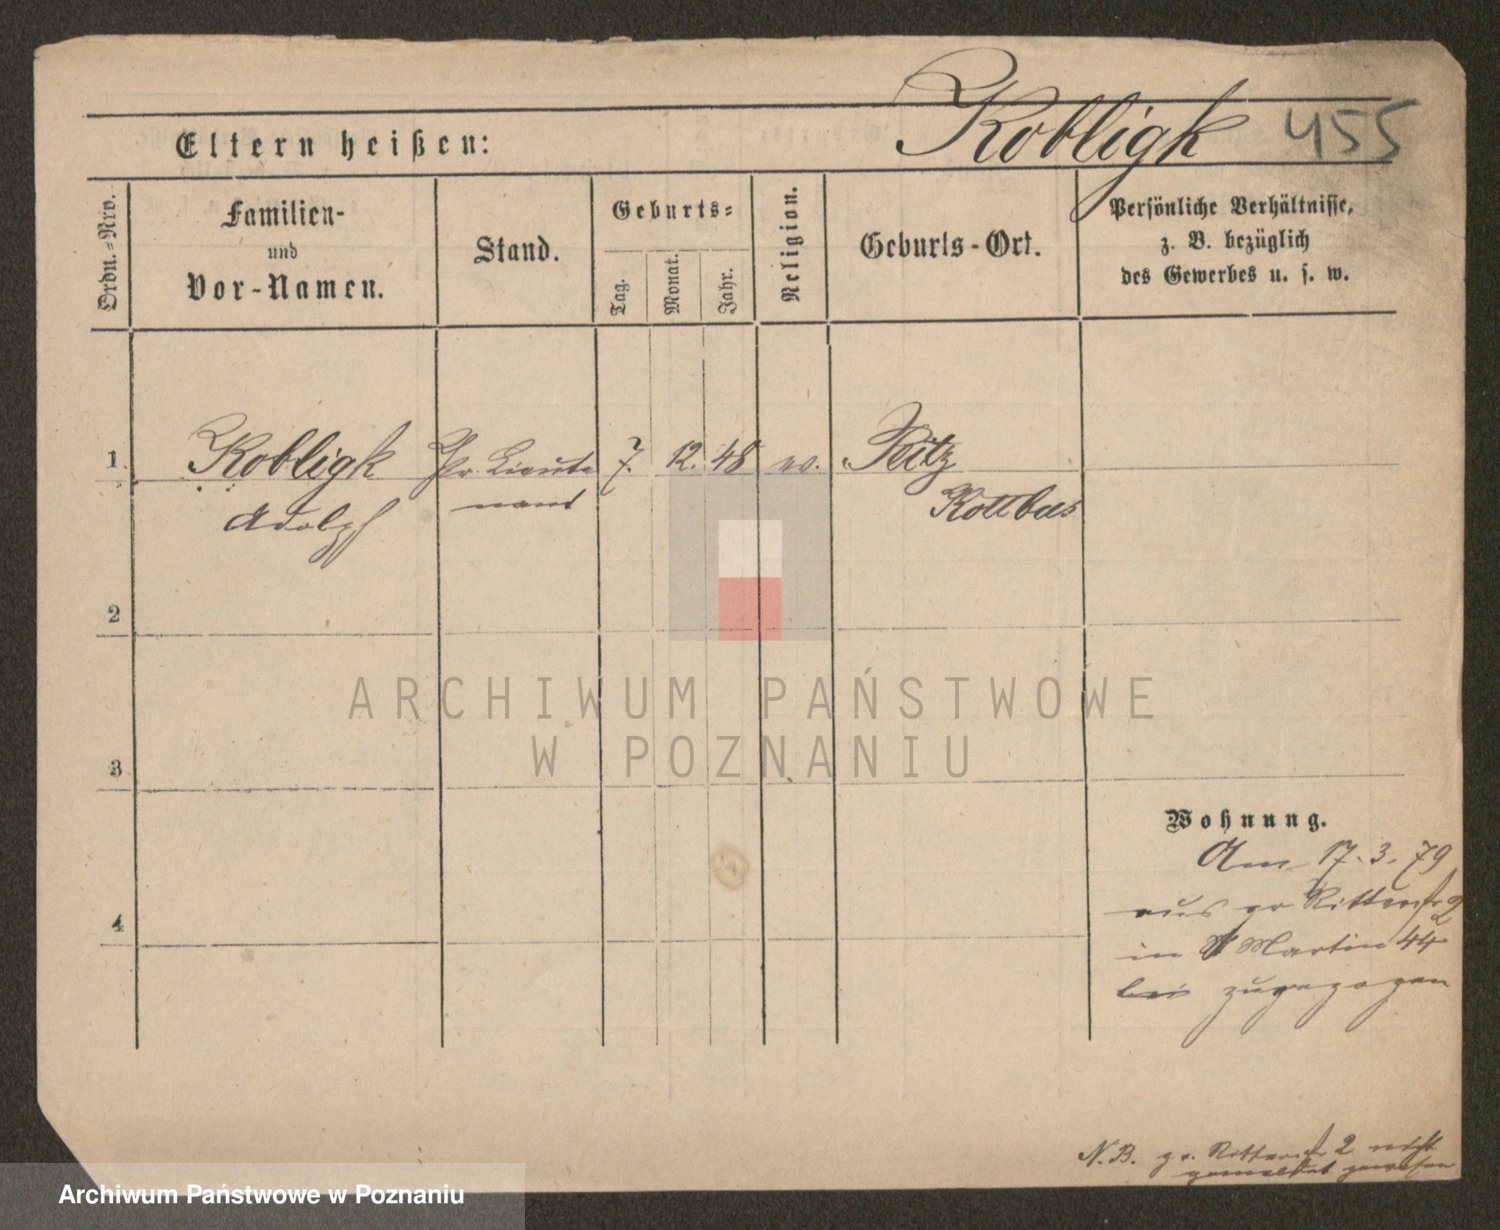 Kobligk 455
Eltern heißen:
Ordn.=Nro.
Familien-
und
Vor-Namen.
Stand.
Geburts=
Tag.
Monat.
Jahr.
Religion.
Geburts-Ort.
Persönliche Verhältnisse,
z. B. bezüglich
des Gewerbes u. s. w.
1 Kobligk Pr. Lieute 7. 12. 48 ev. Peitz
Adolph nant Kottbus
2
3
4
Wohnung.
Am 17. 3. 79
aus gr Ritterstr 2
in St Martin 44
bei zugezogen
N.B. gr. Ritterstr 2 nicht
gemeldet gewesen
ARCHIWUM PAŃSTWOWE
W POZNANIU
Archiwum Państwowe w Poznaniu